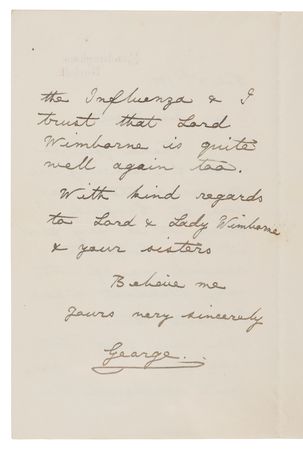 the Influenza & I
trust that Lord
Wimborne is quite
well again too.
With kind regards
to Lord & Lady Wimborne
& your sisters
Believe me
yours very sincerely
George.